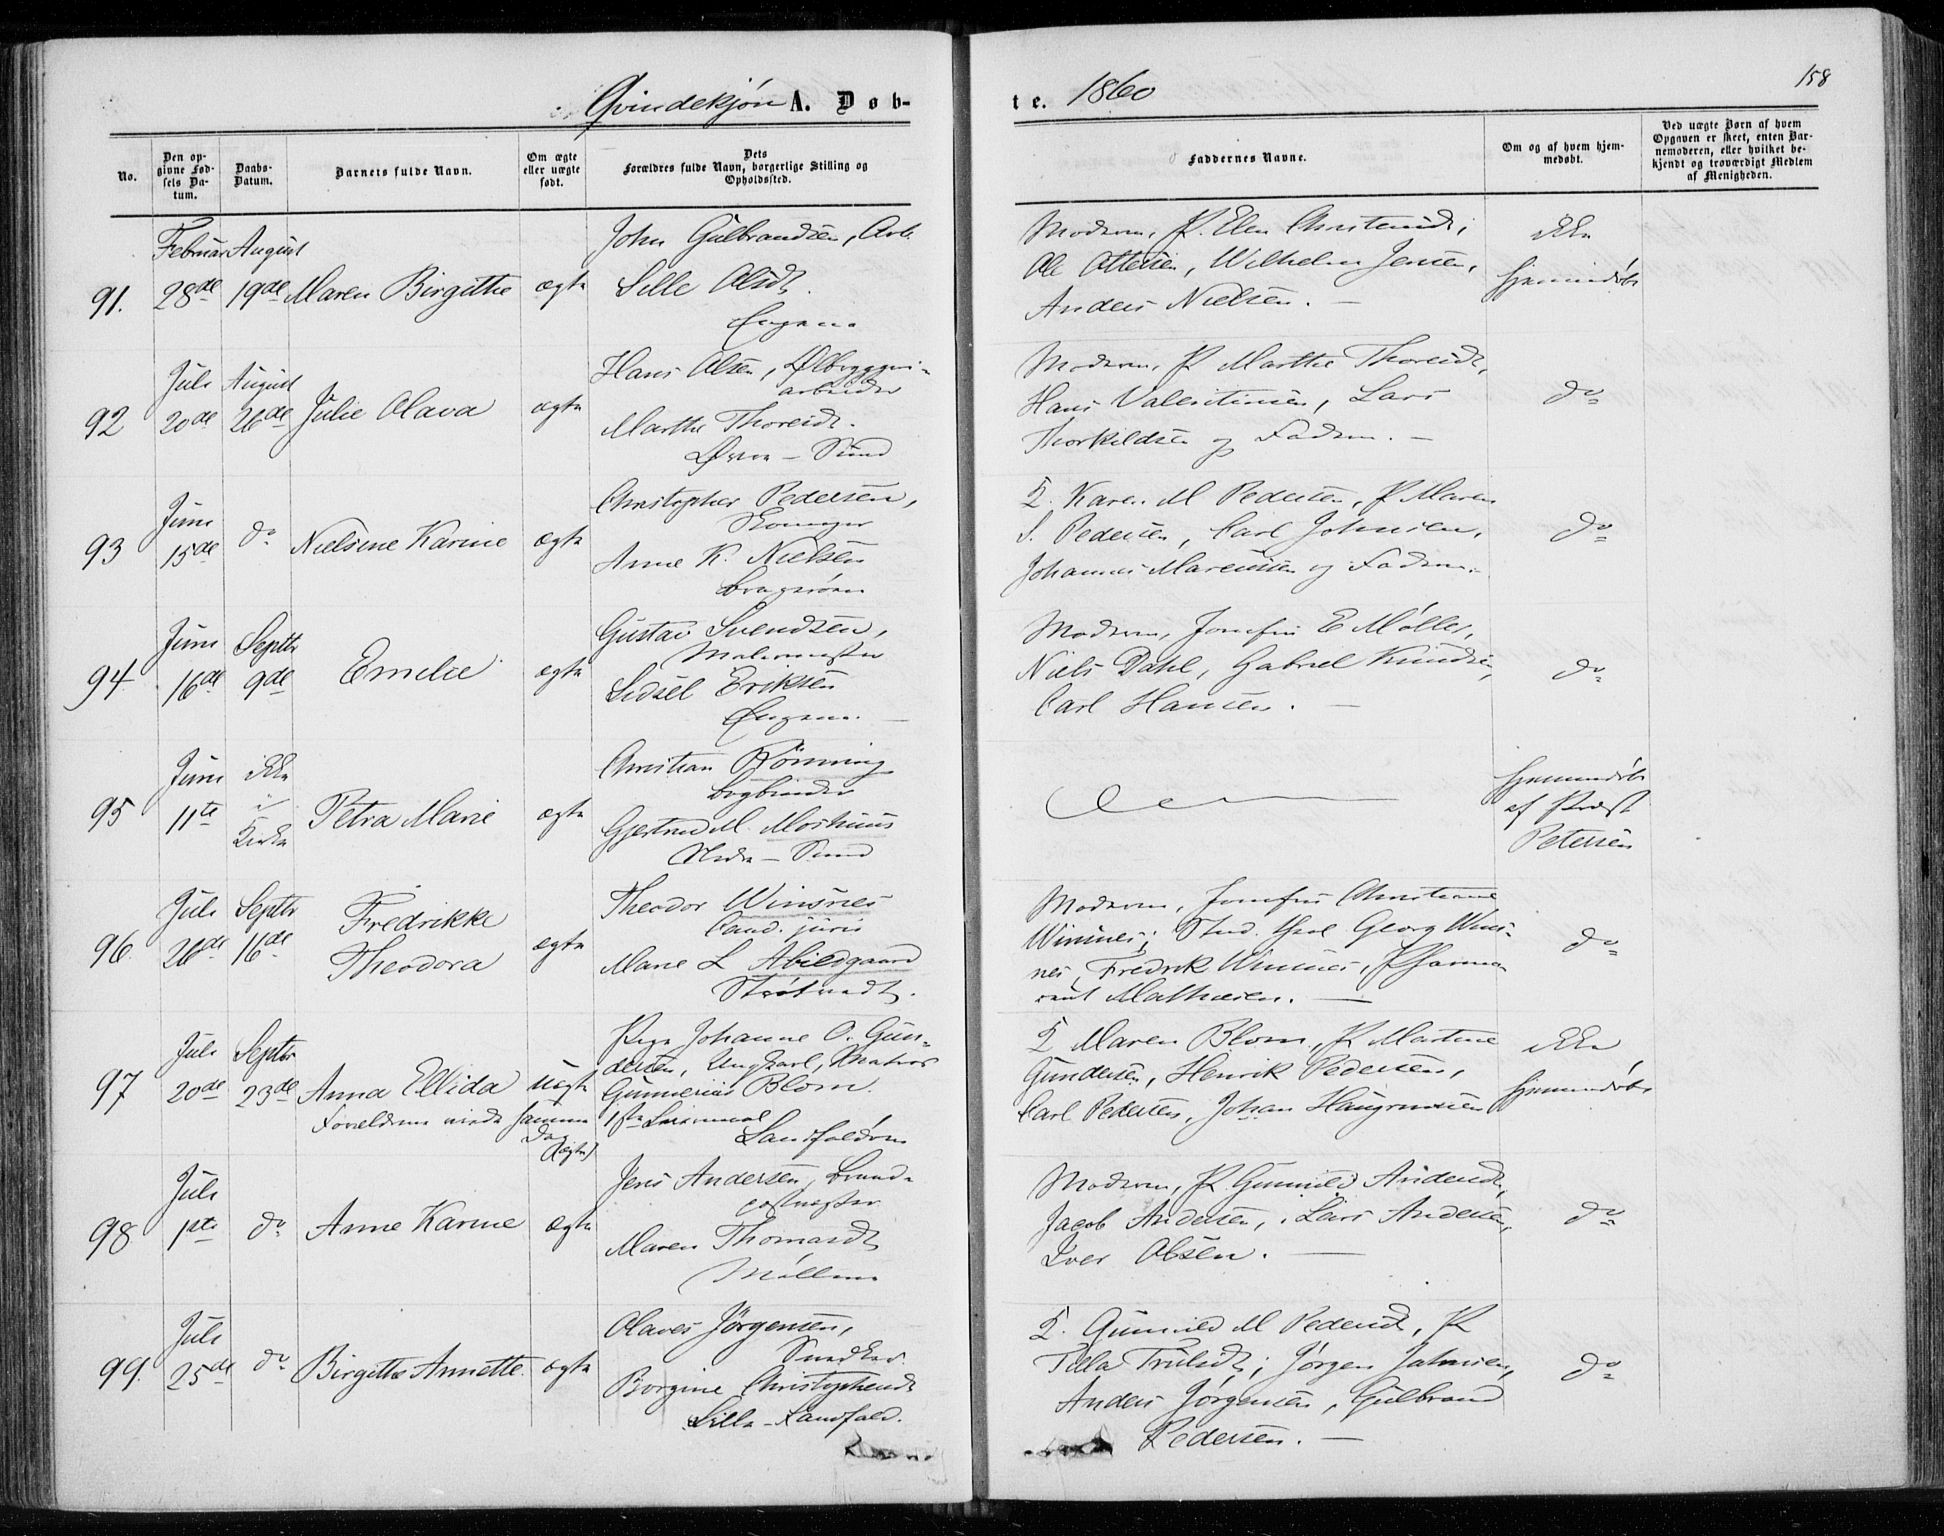 158
Qvindekjøn A. Døb-
te. 1860
No.
Den op-
givne Fød-
sels Da-
tum.
Daabs-
Datum.
Barnets fulde Navn.
Om ægte
eller uægte
født.
Dets
Forældres fulde Navn, borgerlige Stilling og
Opholdssted.
Faddernes Navne.
Om og af hvem hjem-
medøbt.
Ved uægte Børn af hvem
Opgaven er skeet, enten Bar-
nemoderen, eller hvilket be-
kjendt og troværdigt Medlem
af Menigheden.
91.
Februar
28de
August
19de
Maren Birgitte
ægte
John Gulbrandsen, Arb.
Sille Olsdt.
Engene
Moderen, P. Elen Christensdt,
Ole Ottesen, Wilhelm Jensen,
Anders Nielsen. —
ikke
hjemmedøbt
92
Juli
20de
August
26de
Julie Olava
ægte
Hans Olsen, Ølbryggeri-
arbeider
Marthe Thoresdt.
Øvre – Sund
Moderen, P Marthe Thoresdt,
Hans Valentinsen, Lars
Thorkildsen og Faderen. —
do
93
Juni
15de
do
Nielsine Karine
ægte
Christopher Pedersen,
Anne K. Nielsen
Bragerøen
F. Karen M Pedersen, P Maren
S. Pedersen, Carl Johnsen,
Johannes Marcussen og Faderen.
do
94
Juni
16de
Septbr
9de
Emelie
ægte
Gustav Svendsen,
Malermester
Sidsel Eriksen
Engene. —
Moderen, Josefine E Møller,
Niels Dahl, Gabriel Knudsen,
Carl Hansen. —
do
95
Juni
11te
ikke
i
Kirke
Petra Marie
ægte
Christian Rønning
Bogbinder
Gjertrud M. Moshuus
Nedre – Sund
hjemmedøbt
af Præst
Petersen
96
Juli
26de
Septbr
16de
Fredrikke
Theodora
ægte
Theodor Winsnes
Cand. juris
Marie L Abildgaard
Strøtvedt.
Moderen, Josefine Christiane
Winsnes; Stud. theol Georg Wins-
nes, Fredrik Winsnes, Pharma-
ceut Mathiesen. —
do
97
Juli
20de
Septbr
23de
Anna Ellida
Forældrene viede samme
Dag
(ægte)
uægte
Pige Johanne O. Gun-
dersen, Ungkarl, Matros
Gunnerius Blom.
1ste Leiermaal
Landfaldøen
F Maren Blom, P Martine
Gundersen, Henrik Pedersen,
Carl Pedersen, Johan Haugmundsen
ikke
hjemmedøbt
98
Juli
1ste
do
Anne Karine
ægte
Jens Andersen, Brand-
Maren Thomasdt
Møllen
Moderen, P. Gunnild Andersdt,
Jacob Andersen, Lars Andersen,
Iver Olsen. —
do
99.
Juli
25de
do
Birgitte Annette.
ægte
Olaves Jørgensen,
Snedker.
Borgine Christophersdt
Lille-Landfald.
F. Gunnild M Pedersdt, P
Pella Trulsdt; Jørgen Johnsen,
Anders Jørgensen, Gulbrand
Pedersen. —
do